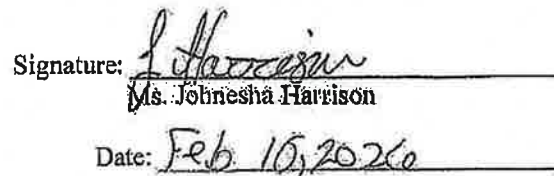 Signature: J Harrison
Ms. Johnesha Harrison
Date: Feb 10, 2026